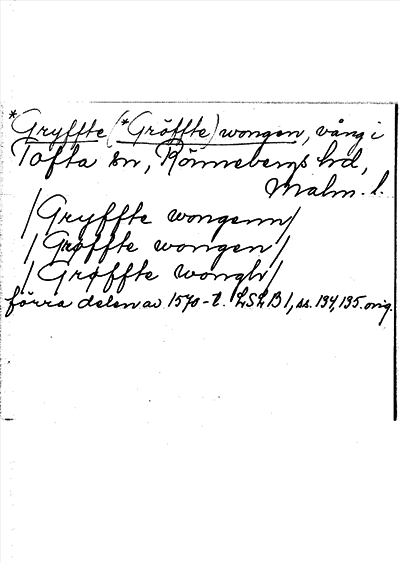 *Gryffte (*Gröffte) wongen, vång i
Tofta sn, Rönnebergs hd,
Malm. l.
/Gryffte wongenn/
/Grøffte wongen/
/Grøffte wongh/
förra delen av 1570-t. LSLB 1, ss. 134, 135. orig.